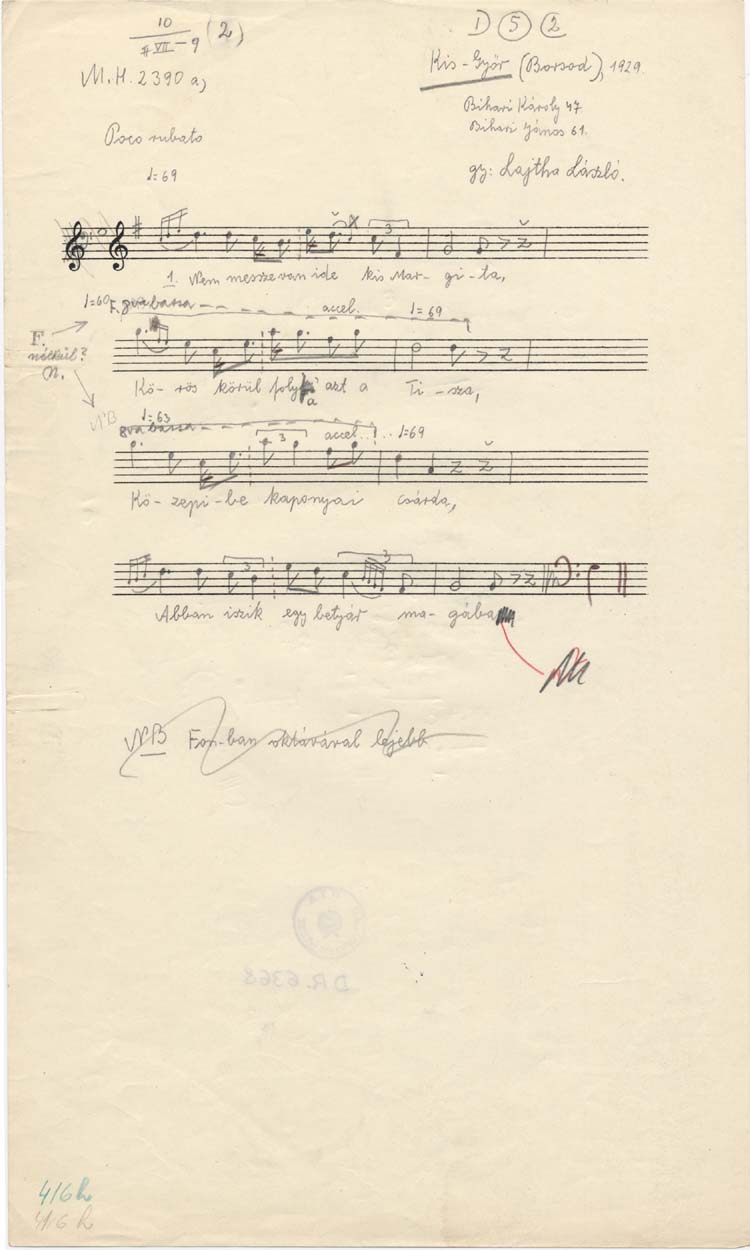 10 (2)
VII-9
M.H. 2390 a,
D 5 2
Kis-Győr (Borsod), 1929.
Bihari Károly 47
Bihari János 61.
gy: Lajtha László.
Poco rubato
♩=69
3
1. Nem messze van ide kis Mar-gi-ta,
♩=60 F. 8va bassa accel. ♩=69
F.
nélkül?
Kö-rös körül foly azt a Ti-sza,
NB ♩=63
8va bassa accel. ♩=69
3
Kö-zepi-be kaponyai csárda,
3 3
Abban iszik egy betyár ma-gába
NB Fon-ban oktávával lejebb
DR. 6368
416 h
416 h